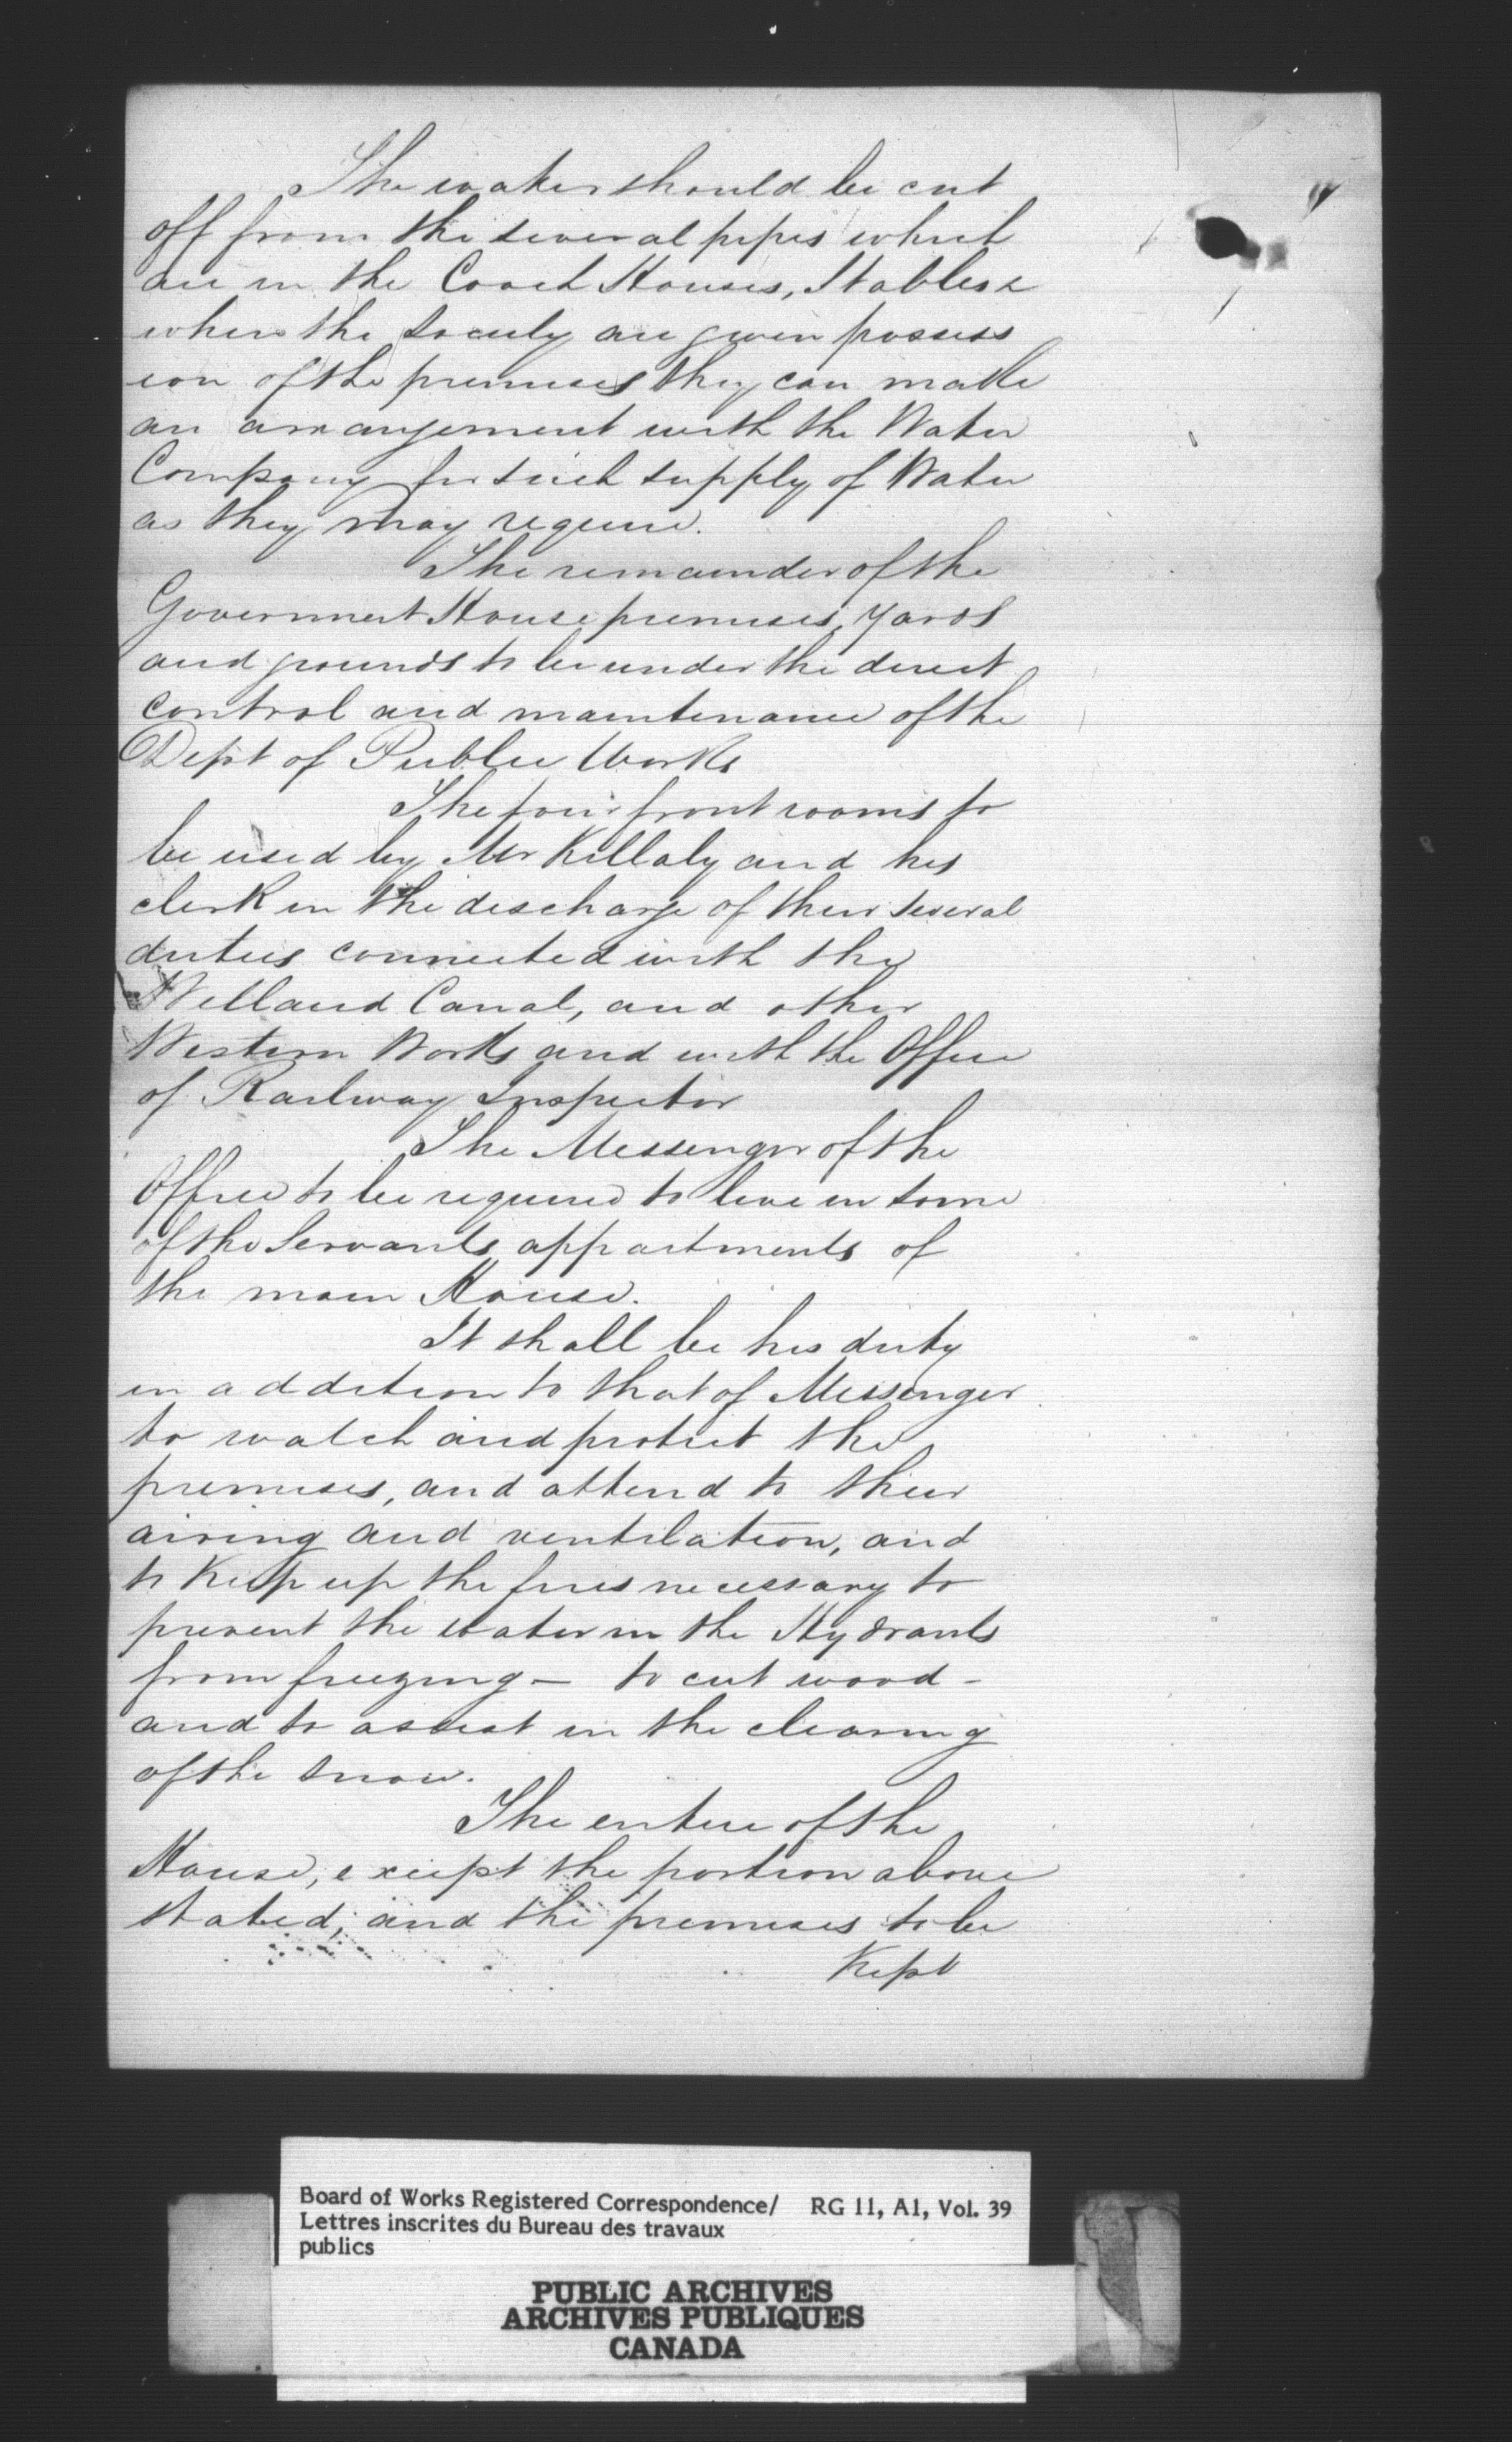 The water should be cut
off from the several pipes which
are in the Coach Houses, Stables &
when the Society are given possess
ion of the premises they can make
an arrangement with the Water
Company for such supply of Water
as they may require.
The remainder of the
Government House premises, yards
and grounds to be under the direct
control and maintenance of the
Dept of Public Works
The four front rooms to
be used by Mr Killaly and his
clerk in the discharge of their several
duties connected with the
Welland Canal, and other
Western Works and with the Office
of Railway Inspector
The Messenger of the
Office to be required to live in some
of the Servants appartments of
the main House.
It shall be his duty
in addition to that of Messenger
to watch and protect the
premises, and attend to their
airing and ventilation, and
to keep up the fires necessary to
prevent the water in the Hydrants
from freezing — to cut wood -
and to assist in the clearing
of the snow.
The entire of the
House, except the portion above
stated; and the premises to be
Kept
Board of Works Registered Correspondence/ RG 11, A1, Vol. 39
Lettres inscrites du Bureau des travaux
publics
PUBLIC ARCHIVES
ARCHIVES PUBLIQUES
CANADA